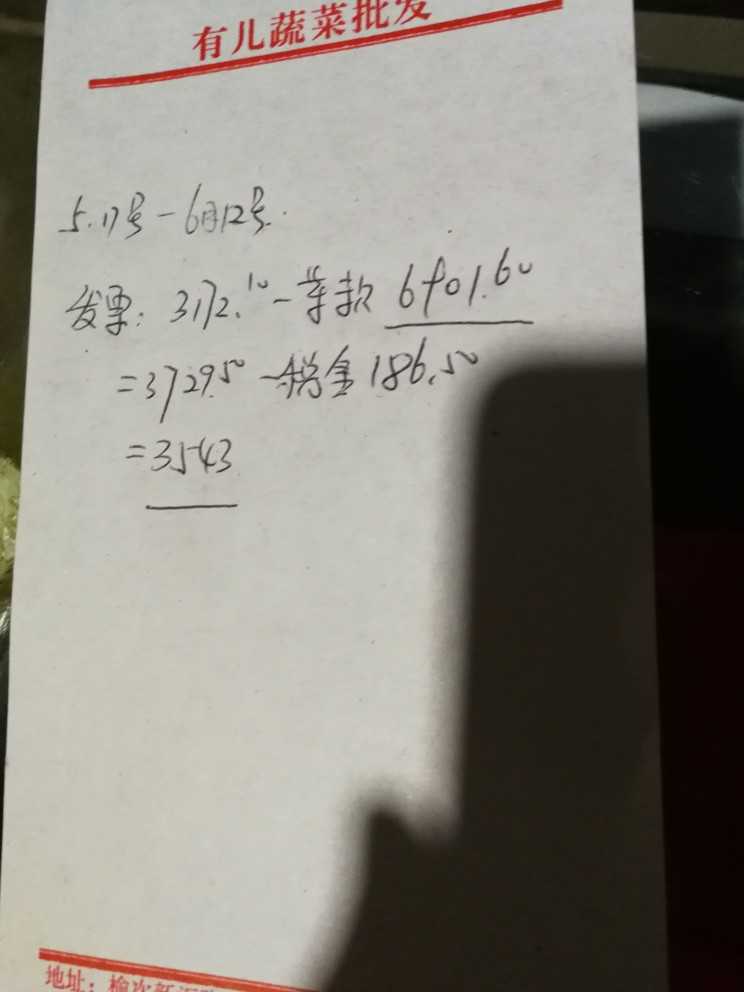 有儿蔬菜批发
5.17号-6月12号.
发票: 3172.10-菜款 6901.60
=3729.50-税金186.50
=3543
地址: 榆次新